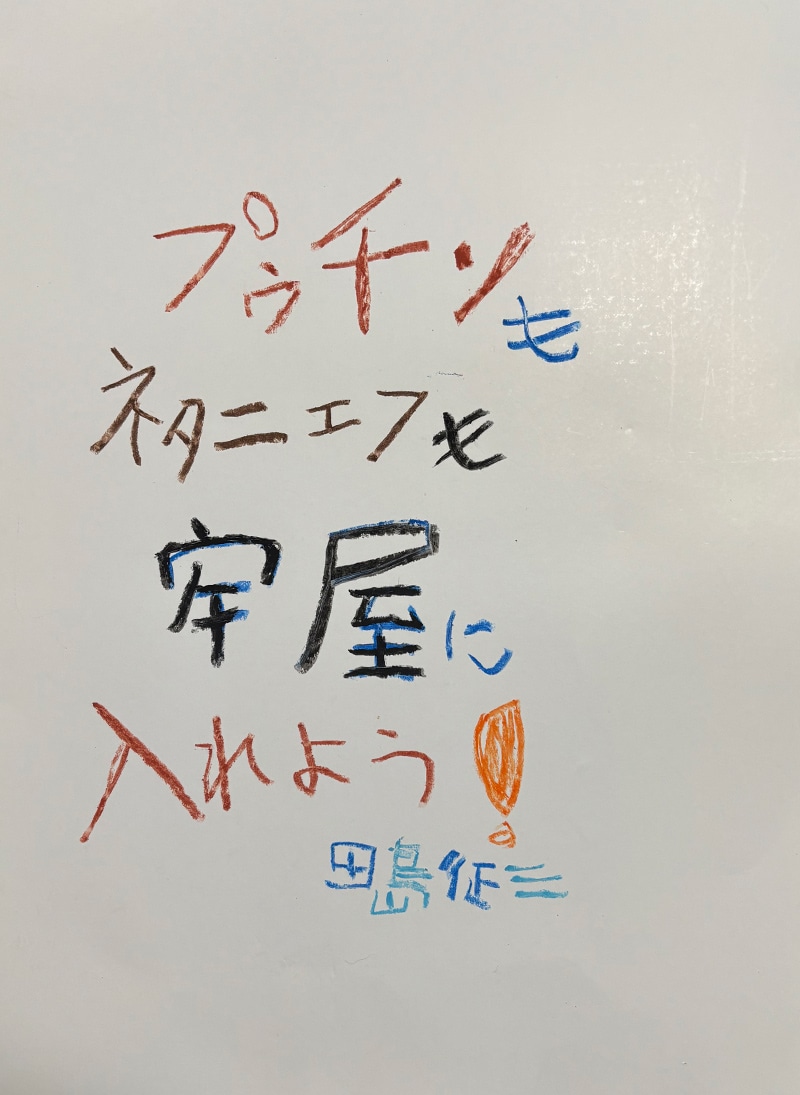 プゥチンも
ネタニエフも
牢屋に
入れよう!
田島征三